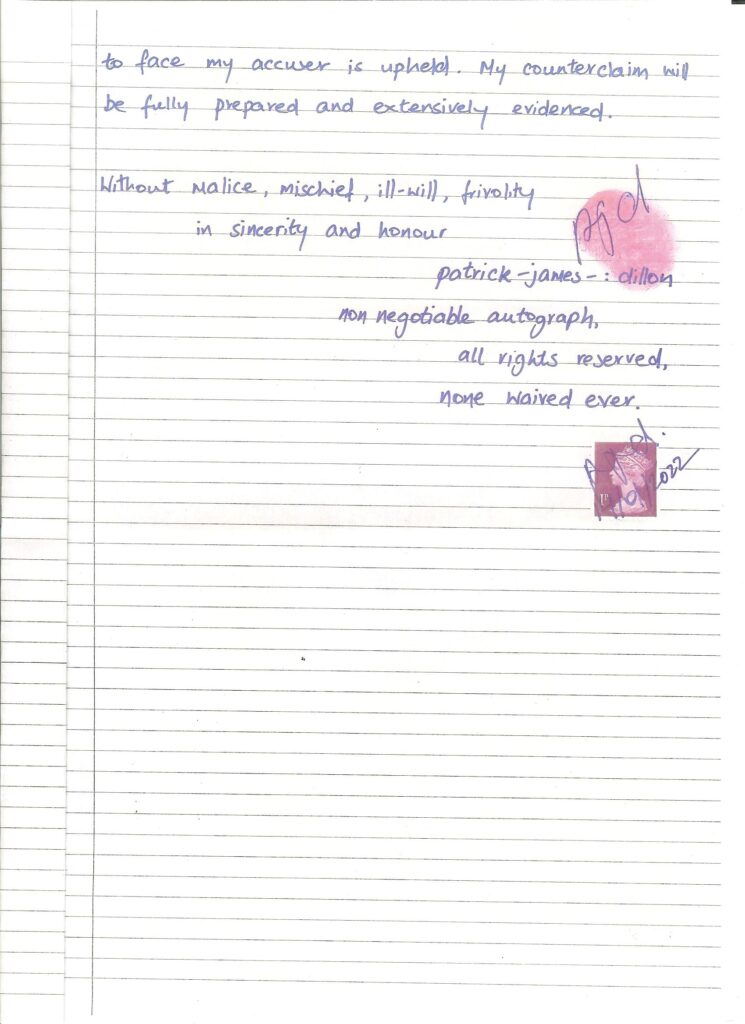 to face my accuser is upheld. My counterclaim will
be fully prepared and extensively evidenced.
Without Malice, mischief, ill-will, frivolity
in sincerity and honour
pjd
patrick-james-: dillon
non negotiable autograph,
all rights reserved,
none waived ever.
2022